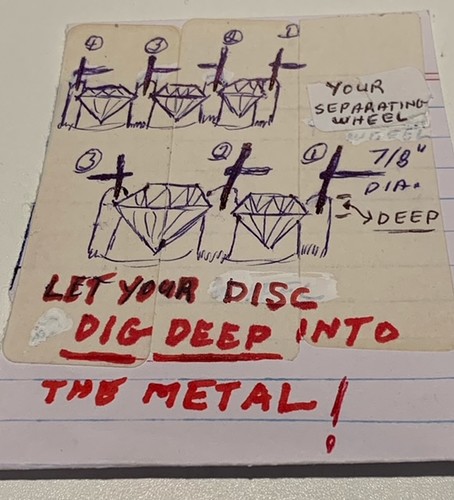 4 3 2 1
YOUR
SEPARATING
WHEEL
3 2 1 7/8"
DIA.
DEEP
LET YOUR DISC
DIG DEEP INTO
THE METAL!